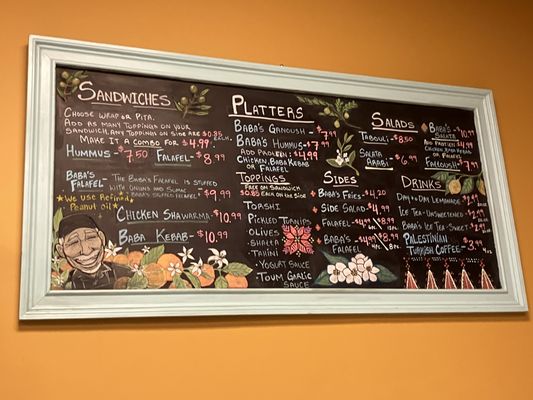 SANDWICHES
CHOOSE WRAP OR PITA.
ADD AS MANY TOPPINGS ON YOUR
SANDWICH. ANY TOPPINGS ON SIDE ARE $0.85 EACH.
MAKE IT A COMBO FOR $4.99!
HUMMUS - $7.50 FALAFEL - $8.99
BABA'S FALAFEL - THE BABA'S FALAFEL IS STUFFED
WITH ONIONS AND SUMAC
BABA'S STUFFED FALAFEL $9.99
*WE USE REFINED
PEANUT OIL*
CHICKEN SHAWARMA - $10.99
BABA KEBAB - $10.99
PLATTERS
BABA'S GANOUSH - $7.99
BABA'S HUMMUS - $7.99
ADD PROTEIN $4.99
CHICKEN, BABA KEBAB
OR FALAFEL
TOPPINGS
FREE ON SANDWICH
$0.85 EACH ON THE SIDE
TORSHI
PICKLED TURNIPS
OLIVES
SHATTA
TAHINI
YOGURT SAUCE
TOUM GARLIC
SAUCE
SIDES
BABA'S FRIES - $4.20
SIDE SALAD - $4.99
FALAFEL
BABA'S
FALAFEL
SALADS
TABOULI - $8.50
SALATA
ARABI - $6.99
BABA'S
SALATA - $10.99
ADD PROTEIN $4.99
CHICKEN, BABA KEBAB
OR FALAFEL
FATTOUSH - $7.99
DRINKS
MINT LEMONADE
ICE TEA - UNSWEETENED
ICE TEA - SWEETENED
PALESTINIAN
TURKISH COFFEE - $3.99